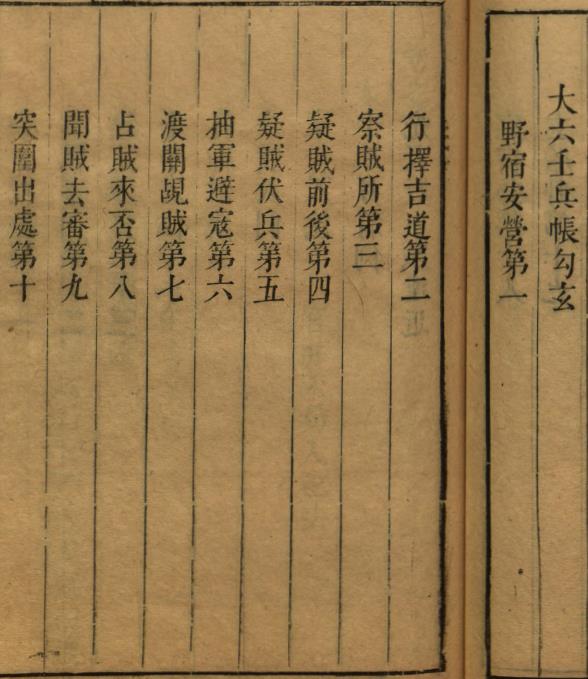 大六壬兵帳勾玄
野宿安營第一
行擇吉道第二
察賊所第三
疑賊前後第四
疑賊伏兵第五
抽軍避寇第六
渡關覘賊第七
占賊來否第八
聞賊去審第九
突圍出處第十